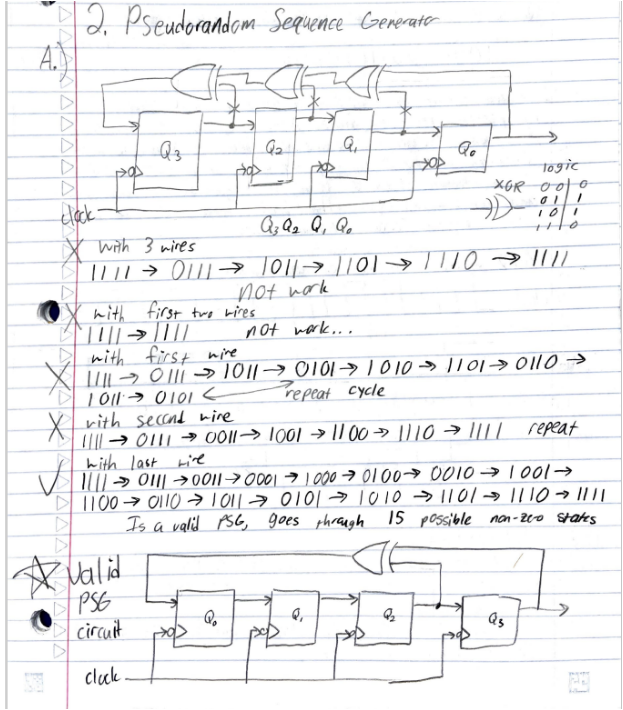 2. Pseudorandom Sequence Generator
A.)
Q3 Q2 Q1 Q0
logic
XOR 0 0 | 0
0 1 | 1
1 0 | 1
1 1 | 0
clock
Q3 Q2 Q1 Q0
X with 3 wires
1111 → 0111 → 1011 → 1101 → 1110 → 1111
not work
X with first two wires
1111 → 1111 not work...
with first wire
X 1111 → 0111 → 1011 → 0101 → 1010 → 1101 → 0110 →
1011 → 0101 ← repeat cycle
X with second wire
1111 → 0111 → 0011 → 1001 → 1100 → 1110 → 1111 repeat
with last wire
✓ 1111 → 0111 → 0011 → 0001 → 1000 → 0100 → 0010 → 1001 →
1100 → 0110 → 1011 → 0101 → 1010 → 1101 → 1110 → 1111
Is a valid PSG, goes through 15 possible non-zero states
☆ Valid
PSG
circuit
Q0 Q1 Q2 Q3
clock